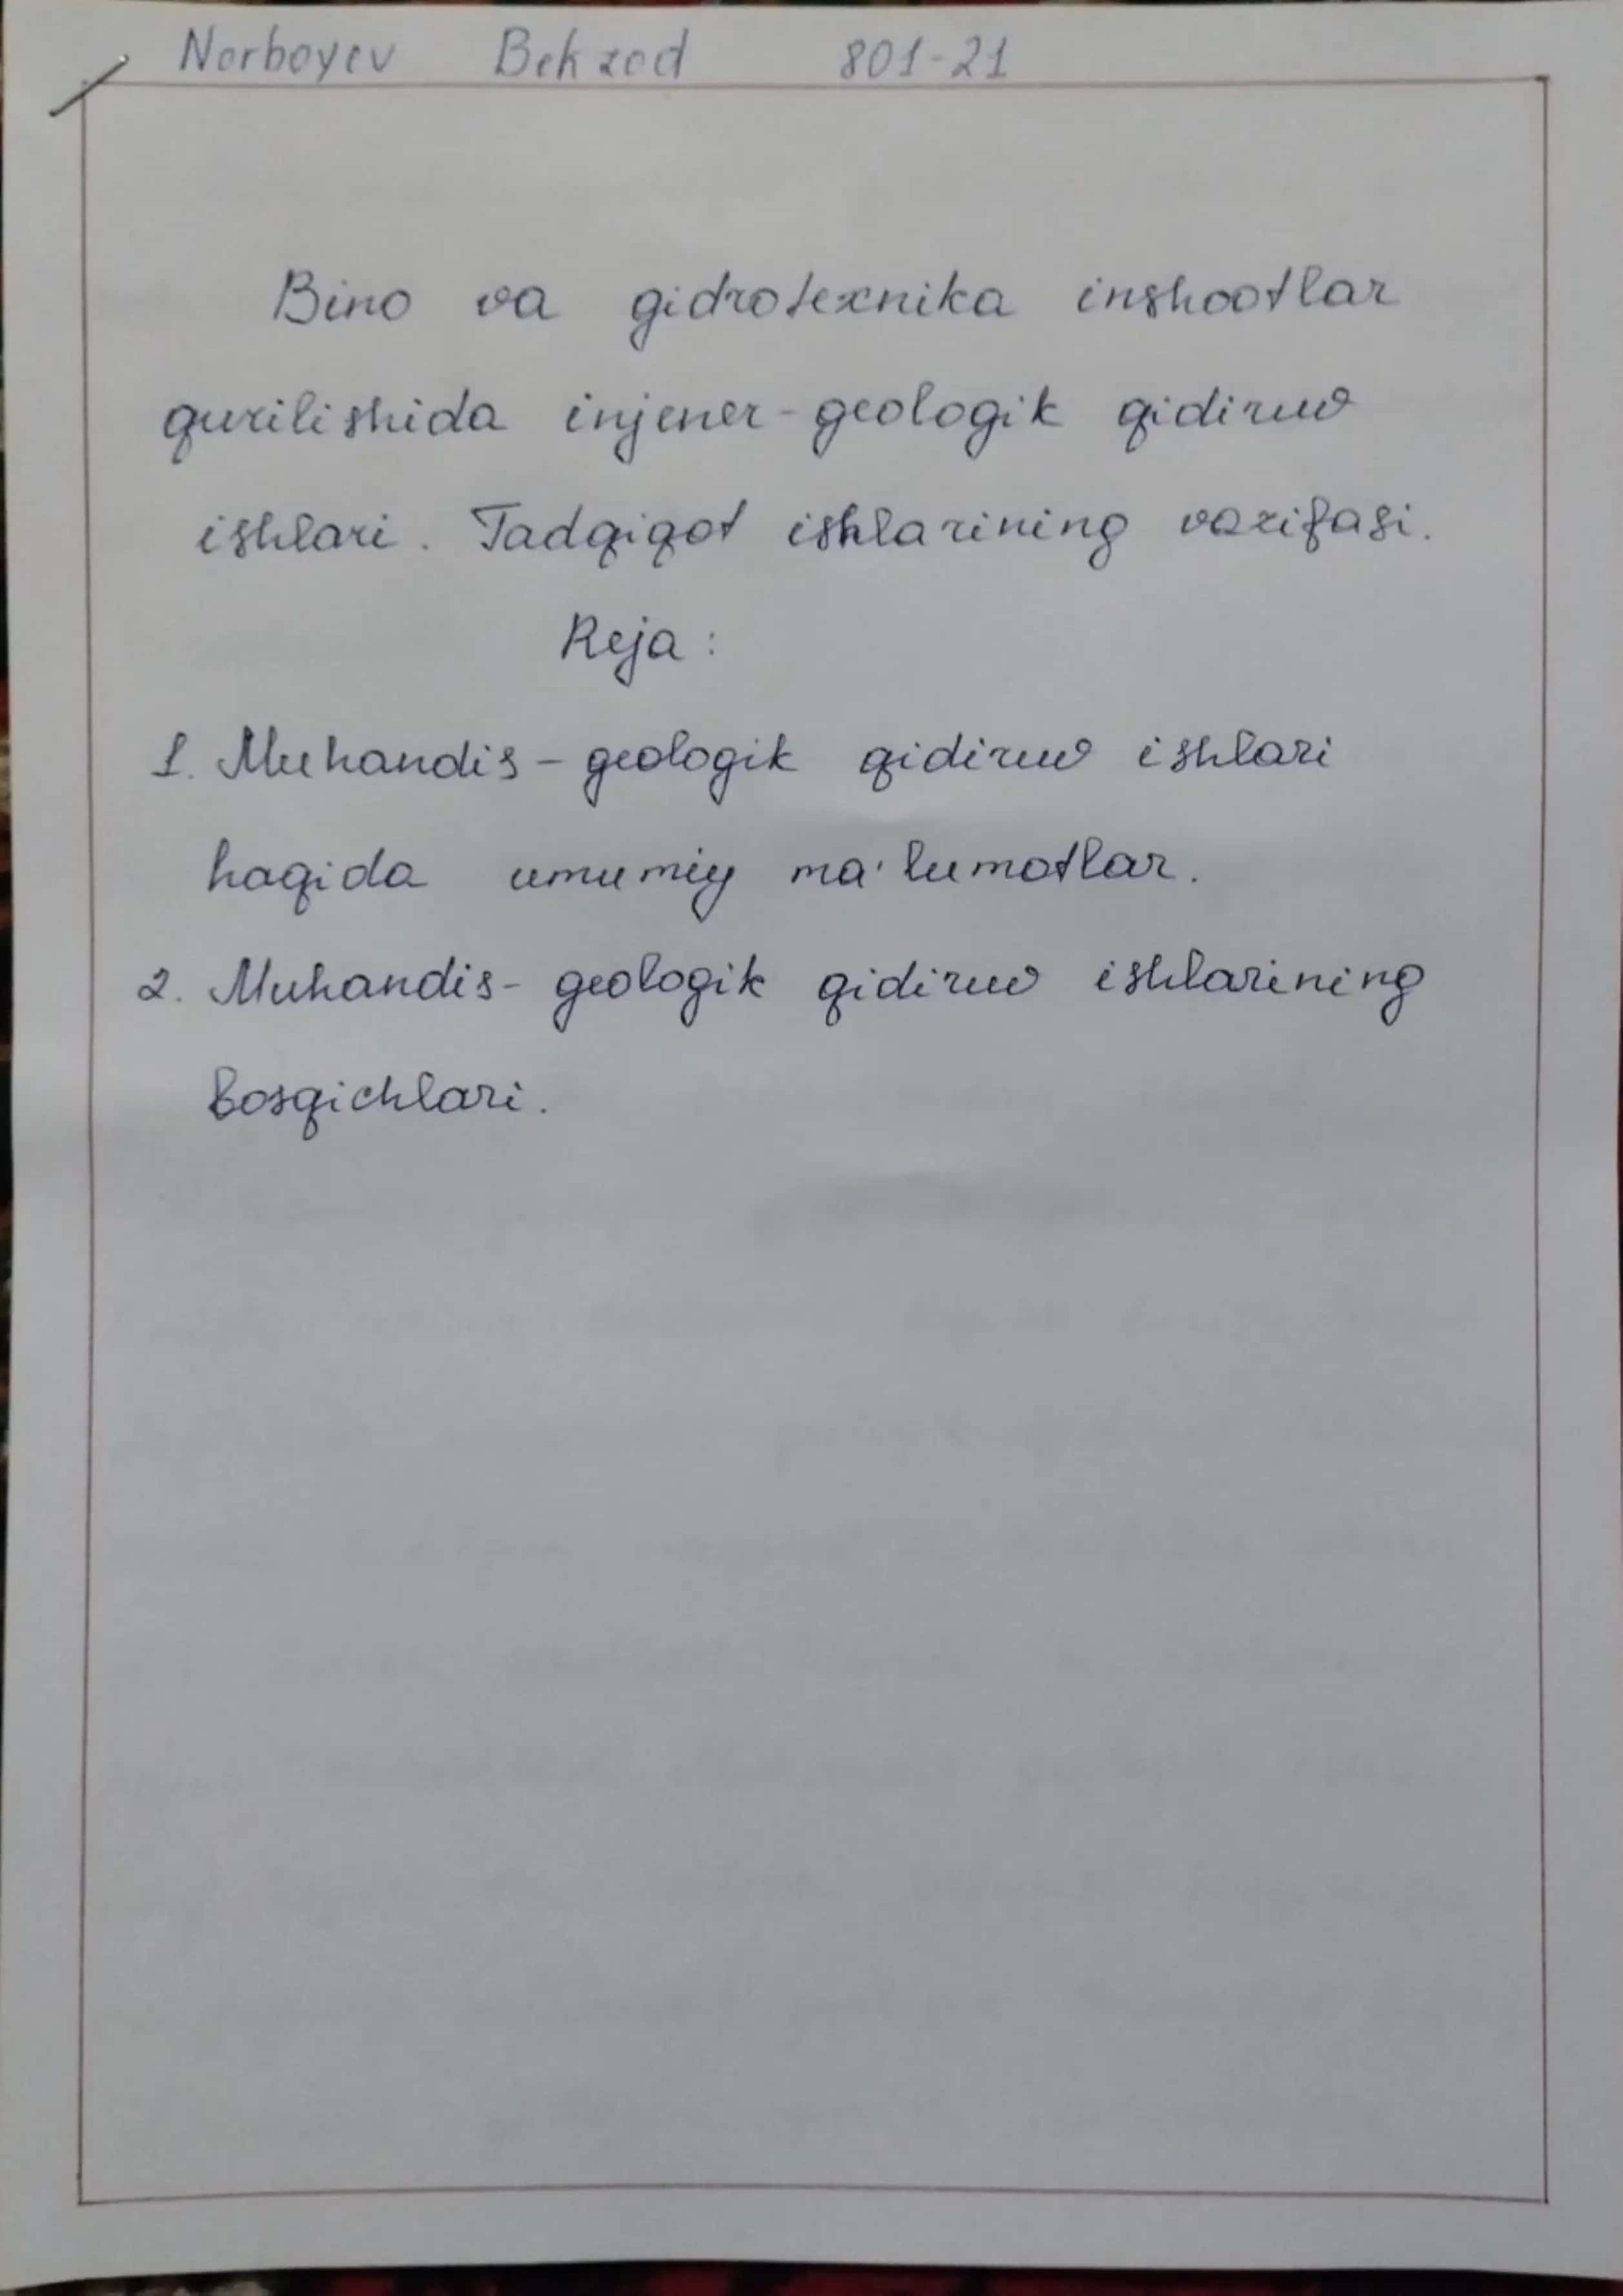 Norboyev Bekzod 801-21
Bino va gidrotexnika inshootlar
qurilishida injener-geologik qidiruv
ishlari. Tadqiqot ishlarining vazifasi.
Reja:
1. Muhandis-geologik qidiruv ishlari
haqida umumiy ma'lumotlar.
2. Muhandis-geologik qidiruv ishlarining
bosqichlari.